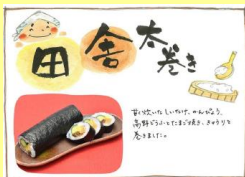 田舎太巻き
甘く炊いたしいたけ、かんぴょう、
高野どうふとたまご焼き、きゅうりを
巻きました。